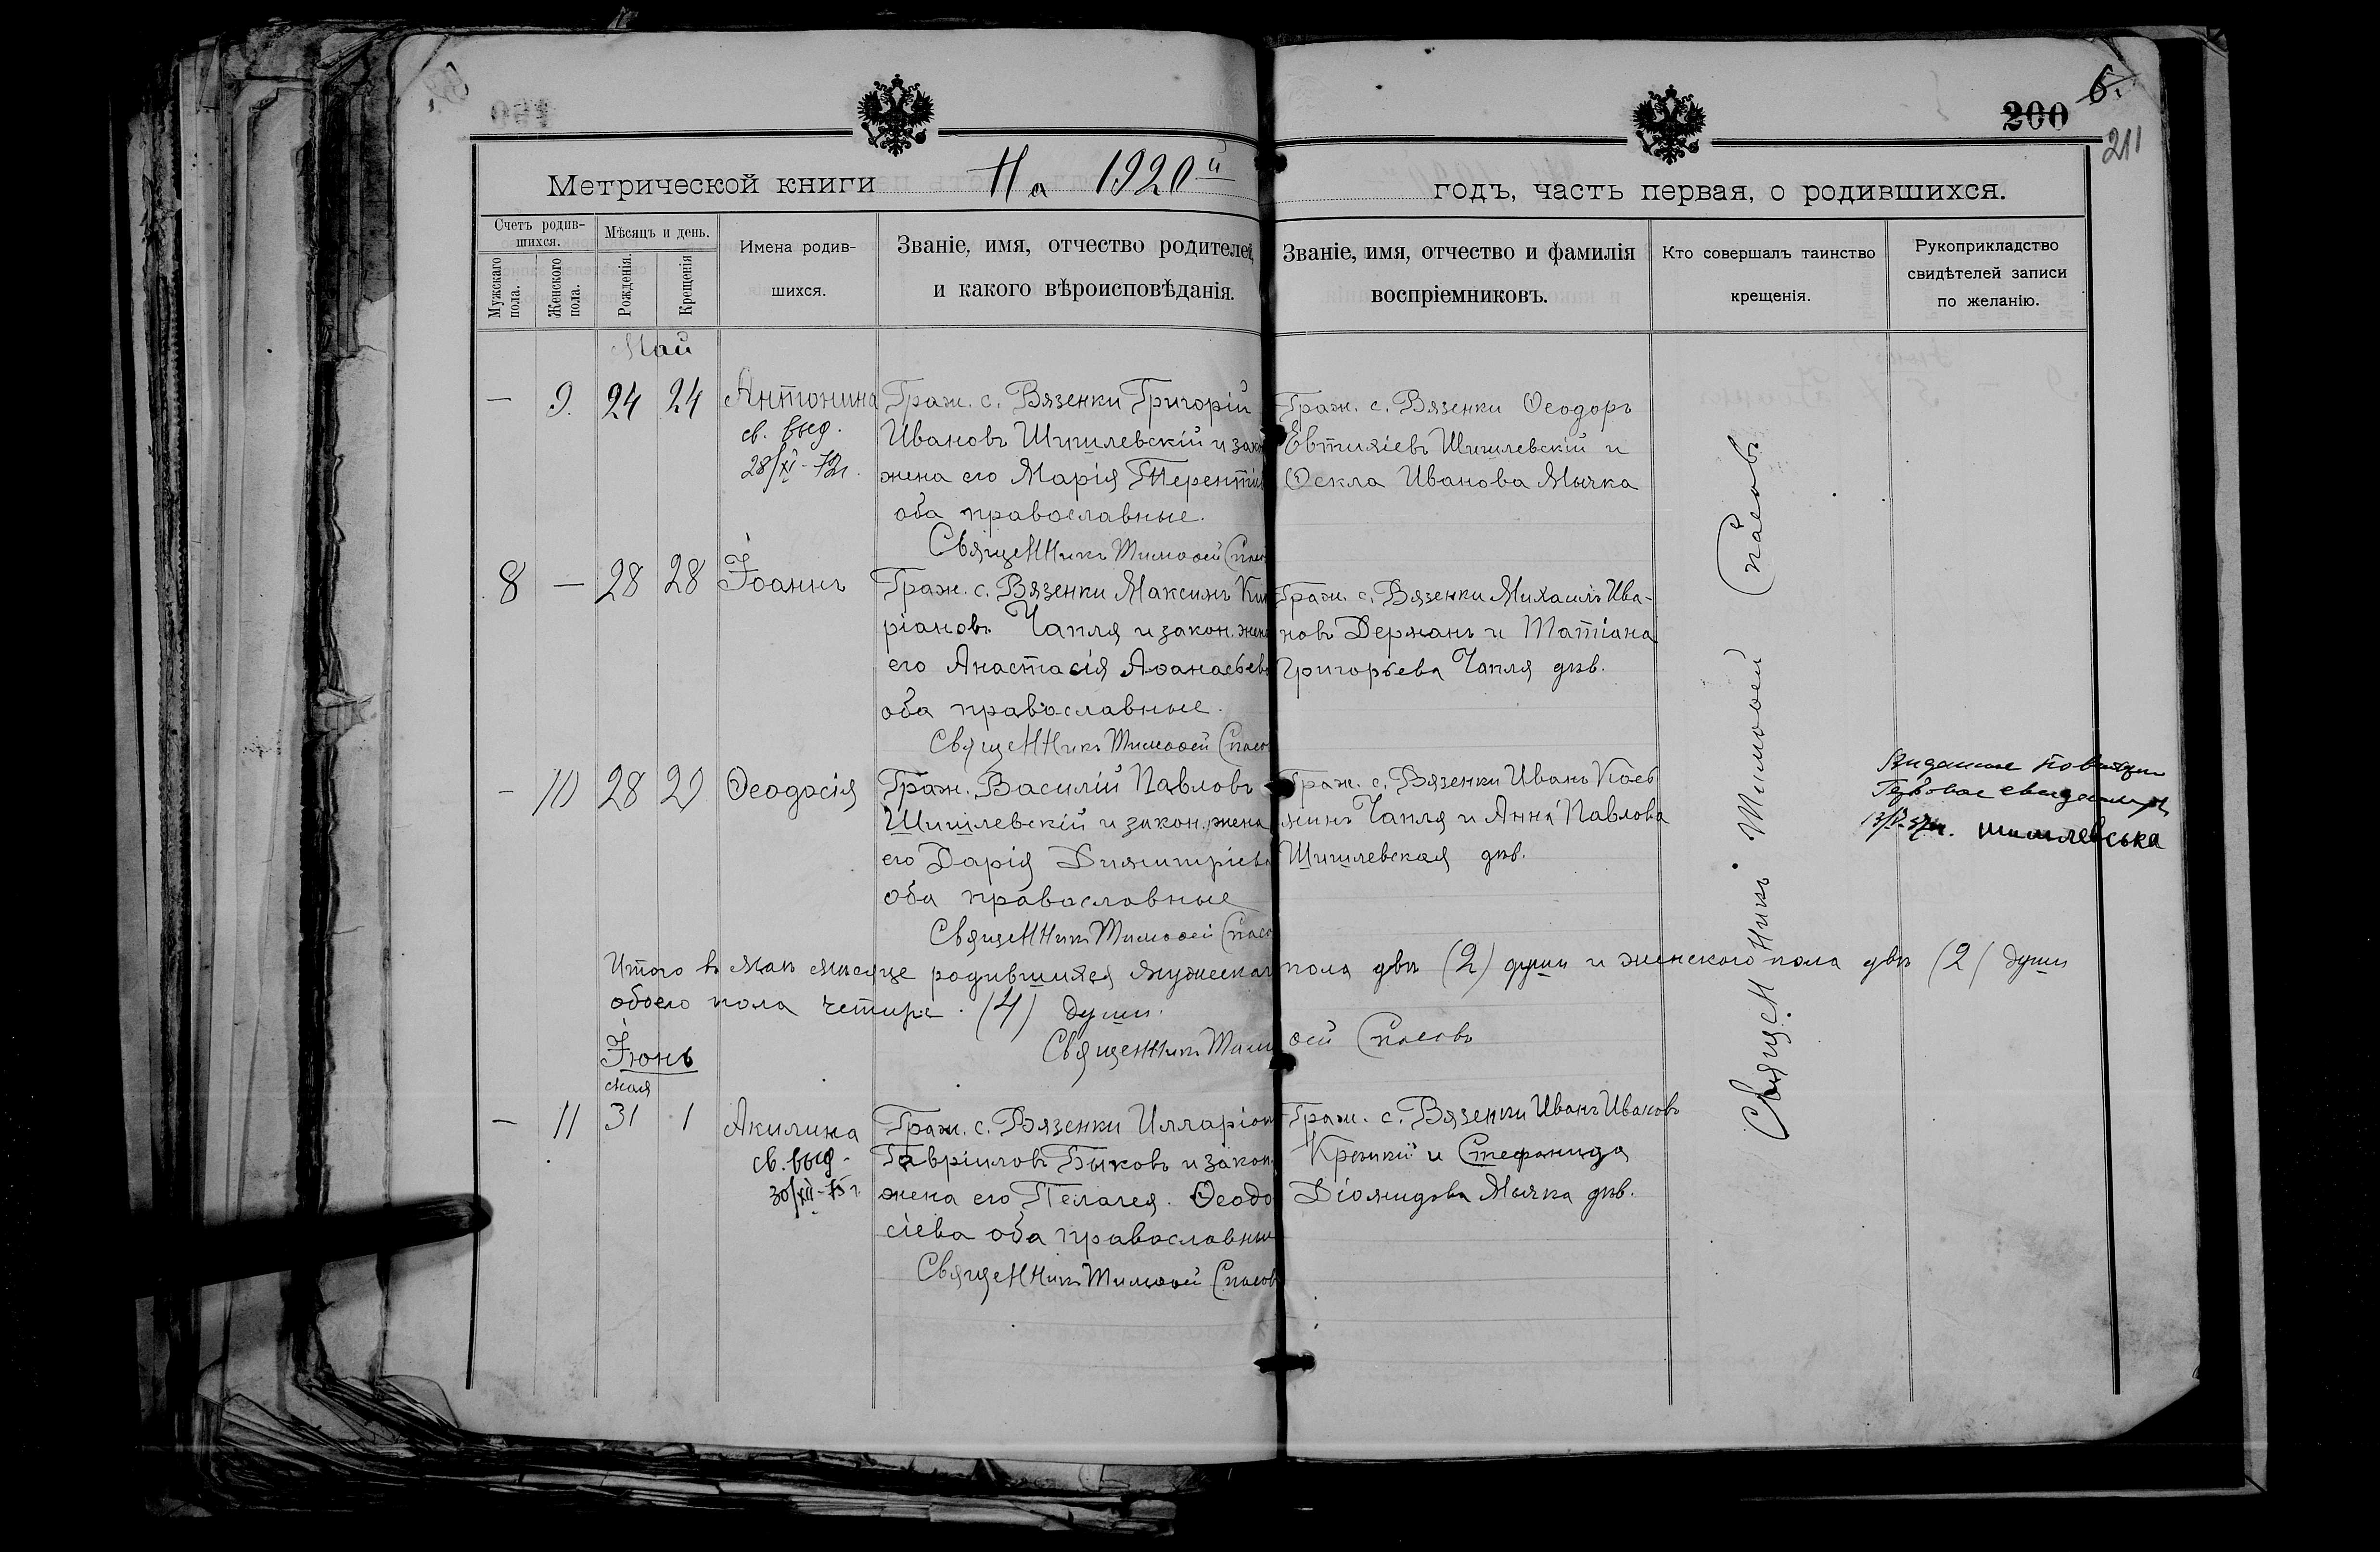 200
6.
211
Метрической книги На 1920й годъ, часть первая, о родившихся.
Счетъ родившихся.
Мужскаго пола.
Женского пола.
Мѣсяцъ и день.
Рожденія.
Крещенія
Имена родившихся.
Званіе, имя, отчество родителей, и какого вѣроисповѣданія.
Званіе, имя, отчество и фамилія воспріемниковъ.
Кто совершалъ таинство крещенія.
Рукоприкладство свидѣтелей записи по желанію.
Май
— 9. 24 24 Антонина
св. выд.
28/XI-72г.
Граж. с. Вязенки Григорій
Ивановъ Шишлевскій и закон
жена его Марія Терентіев
оба православные.
Священникъ Тимоѳей Спасов
Граж. с. Вязенки Ѳеодоръ
Евтихіевъ Шишлевскій и
Ѳекла Иванова Мычка
8 — 28 28 Іоаннъ
Граж. с. Вязенки Максимъ Кип
ріановъ Чапля и закон. жена
его Анастасія Аѳанасьева
оба православные.
Священникъ Тимоѳей Спасов
Граж. с. Вязенки Михаилъ Ива-
новъ Держанъ и Татіана
Григорьева Чапля дѣв.
— 10 28 29 Ѳеодосія
Граж. Василій Павловъ
Шишлевскій и закон. жена
его Дарія Димитріева
оба православные
Священникъ Тимоѳей Спасов
Граж. с. Вязенки Иванъ Косьминъ
Чапля и Анна Павлова
Шишлевская дѣв.
13/V-57г. шишлевська
Итого въ маѣ мѣсяце родившихся мужескаго пола двѣ (2) души и женского пола двѣ (2) души
обоего пола четыре (4) души.
Священникъ Тимоѳей Спасовъ
Іюнь
мая
— 11 31 1 Акилина
св. выд.
30/XII-75г.
Граж. с. Вязенки Илларіон
Гавріиловъ Быковъ и закон.
жена его Пелагея Ѳеодо
сіева оба православные
Священникъ Тимоѳей Спасов
Граж. с. Вязенки Иванъ Ивановъ
и Стефанида
Діомидова Мычка дѣв.
Священникъ Тимоѳей Спасовъ